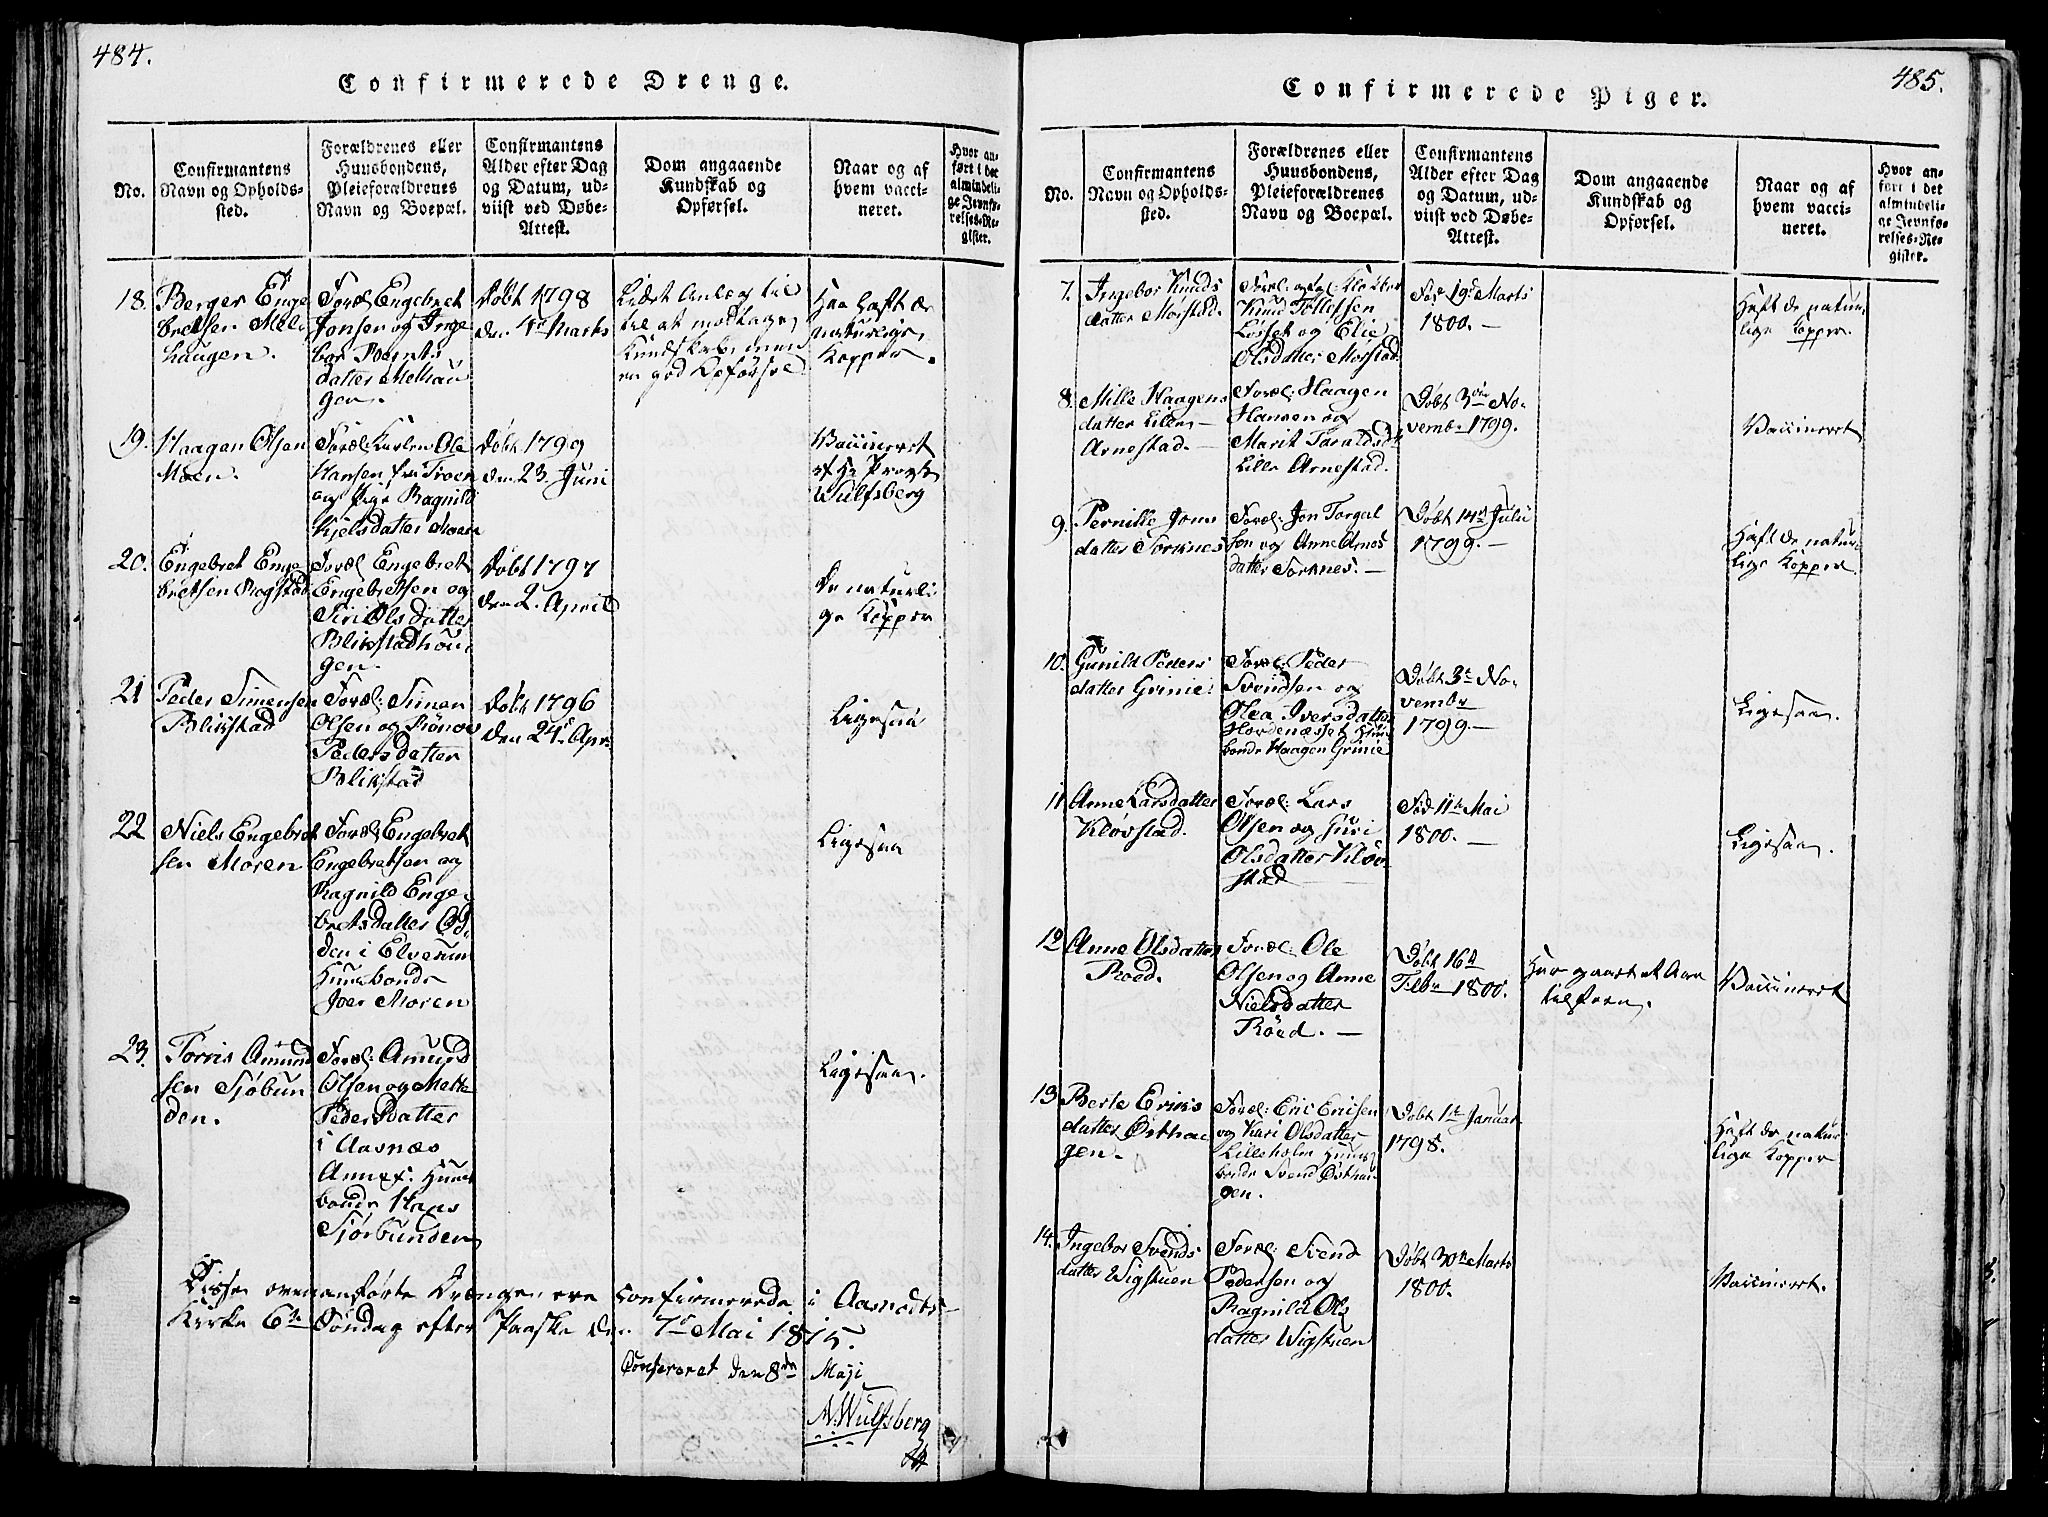 484.
Confirmerede Drenge.
No.
Confirmantens
Navn og Opholds-
sted.
Forældrenes eller
Huusbondens,
Pleieforældrenes
Navn og Boepæl.
Confirmantens
Alder efter Dag
og Datum, ud-
viist ved Døbe-
Attest.
Dom angaaende
Kundskab og
Opførsel.
Naar og af
hvem vacci-
neret.
Hvor an-
ført i det
almindeli-
ge Jevnfø-
relses-Re-
gister.
18.
Berger Enge
bretsen Meli
haugen.
Foræl: Engebret
Jonsen og Inge
bor Bernts
datter Melhau
gen.
Døbt 1798
den 4de Marts
Lidet Anlæg til
til at modtage
Kundskab, men
en god Opførsel
Har haft de
naturlige
Kopper.
19.
Haagen Olsen
Moen.
Foræl: Karlen Ole
Hansen fra
og Pige Ragnild
Kjelsdatter Moen
Døbt 1799
den 23. Juni
Vaccineret
af Hr Provst
Wulfsberg
20.
Engebret Enge
bretsen Rogstad
Foræl: Engebret
Engebretsen og
Siri Olsdatter
Blikstadhou
gen.
Døbt 1797
den 2. April
De naturli
ge Kopper
21
Peder Simensen
Blikstad
Foræl: Simen
Olsen og Rønov
Pedersdatter
Blikstad
Døbt 1796
den 24de Apr.
Ligesaa
22
Niels Engebret
sen Moren
Foræl: Engebret
Engebretsen og
Ragnild Enge
bretsdatter Od
den i Elverum
Huusbonde
Joer Moren
Ligesaa
23.
Torris Amund
sen Sjøbun
den.
Foræl: Amund
Olsen og Mette
Pedersdatter
i Aasnæs
Annex. Huus
bonde Hans
Sjøbunden
Ligesaa.
Disse ovenanførte Drenge ere confirmerede i Aasnæs-
Kirke 6te Søndag efter Paaske den 7de Mai 1815.
Confereret den 8de Maji
N. Wulfsberg
485.
Confirmerede Piger.
No.
Confirmantens
Navn og Opholds-
sted.
Forældrenes eller
Huusbondens,
Pleieforældrenes
Navn og Boepæl.
Confirmantens
Alder efter Dag
og Datum, ud-
viist ved Døbe-
Attest.
Dom angaaende
Kundskab og
Opførsel.
Naar og af
hvem vacci-
neret.
Hvor an-
ført i det
almindeli-
ge Jevnfø-
relses-Re-
gister.
7.
Ingebor Knuds
datter Morstad.
Knud Tollissen
Løsset og Elie
Olsdatter Morstad
19de Marts
1800. —
Haft de natur
lige Kopper.
8.
Mille Haagens
datter Lille
Arnestad. —
Foræl: Haagen
Hansen og
Marit Taraldsd.
Lille Arnestad.
Døbt 3die No-
vembr 1799.
Vaccineret
9.
Pernille Jons
datter Torknes
Foræl: Jon Torgal
sen og Anne Arnes
datter Torknes. —
Døbt 14de Juli
1799. —
Haft de natur
lige Kopper.
10.
Gunild Peders
datter Grinie.
Foræl: Peder
Svendsen og
Olea Iversdatter
Hordenæsset Huus
bonde Haagen Grinie
Døbt 3de No-
vembr
1799. —
Ligesaa.
11
Anne Larsdatter
Kløvstad.
Foræl: Lars
Olsen og Guri
Olsdatter Kløv
stad
Fød 11te Mai
1800. —
Ligesaa.
12
Anne Olsdatter
Roed.
Foræl: Ole
Olsen og Anne
Nielsdatter
Røed. —
Døbt 16de
Febr 1800.
Har gaaet et Aar
tilforn.
Vaccineret
13
Berte Eriks
datter Østhau
gen.
Foræl: Eric Ericsen
og Kari Olsdatter
Lilleholm Huus
bonde Svend Østhau
gen.
Døbt 1te Januar
1798.
Haft de natur
lige Kopper
14.
Ingebor Svends
datter Wigstuen
Foræl: Svend
Pedersen og
Ragnild Ols
datter Wigstuen
Døbt 30te Marts
1800.
Vaccineret.